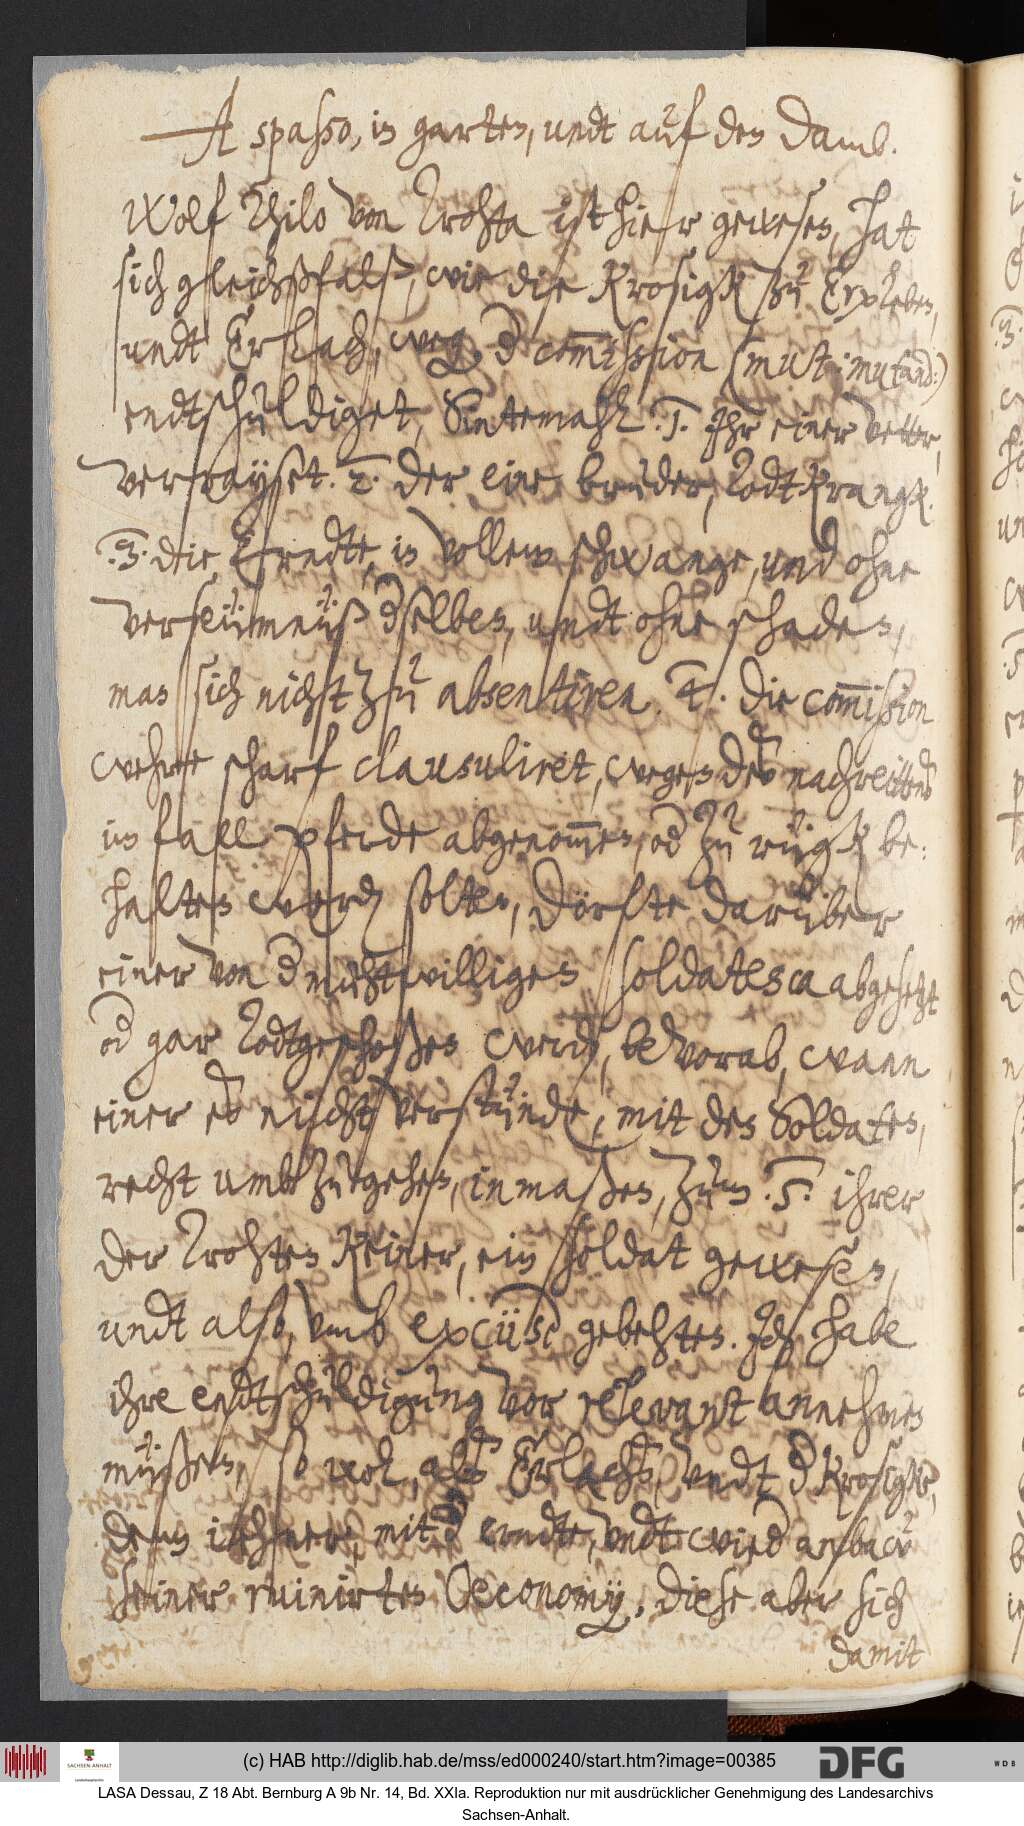 A spasso, in garten, undt auf den Damb.
Wolf Thilo von Trohta ist hier gewesen, hat
sich gleichßfalß, wie die Krosigk zu Erxleben,
undt Erlach, weg. d commission (mut: mutand:)
endtschuldiget, Sintemahl .1. Ihr einer vetter,
verräyset. 2. der eine bruder, Todtkrangk.
.3. die Erndte, in vollem schwange, und ohne
verseümnüß dselben, undt ohne schaden,
man sich nicht zu absentiren. 4. die commission
wehre scharf clausuliret, wegen des nachreittens
im fall pferde abgenommen, od zu rügk be:
halten werden solten, dörfte darüber
einer von d muhtwilligen soldatesca abgesetzt
od gar Todtgeschoßen werden, bevorab, wann
einer es nicht verstünde, mit den Soldaten,
recht umb zugehen, inmaßen, zum .5. ihrer
der Trohten keiner, ein soldat gewesen,
undt also, umb excüse gebehten. Ich habe
ihre endtschuldigung vor relevant annehmen
müßen, so wol, alß Erlachs, undt d Krosigke,
dem iehner, mit d erndte, undt wied anbaw
seiner ruinirten Oeconomy, diese aber sich
damit
(c) HAB http://diglib.hab.de/mss/ed000240/start.htm?image=00385
SACHSEN-ANHALT
DFG
WDB
LASA Dessau, Z 18 Abt. Bernburg A 9b Nr. 14, Bd. XXIa. Reproduktion nur mit ausdrücklicher Genehmigung des Landesarchivs
Sachsen-Anhalt.